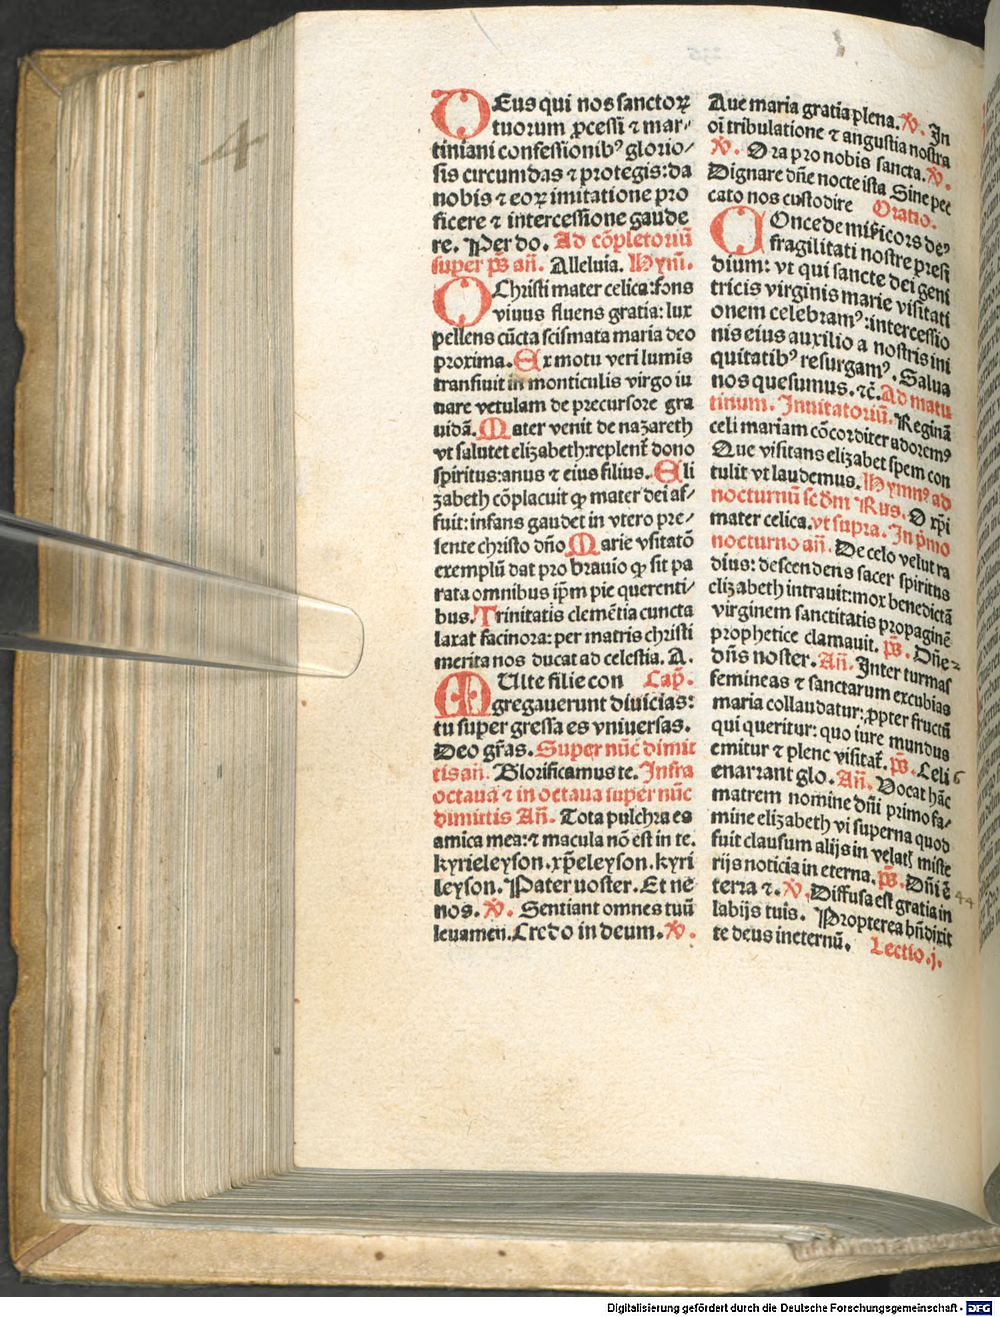 DEus qui nos sanctoꝝ
tuorum ꝓcessi ⁊ mar-
tiniani confessionibꝰ glorio/
sis circumdas ⁊ protegis: da
nobis ⁊ eoꝝ imitatione pro
ficere ⁊ intercessione gaude
re. Per do. Ad cōpletoriū
super p̄s an̄. Alleluia. Hym̄.
O Christi mater celica: fons
viuus fluens gratia: lux
pellens cūcta scismata maria deo
proxima. Ex motu veri lumīs
transiuit in monticulis virgo iu
uare vetulam de precursore gra
uidā. Mater venit de nazareth
vt salutet elizabeth: replent̄ dono
spiritus: anus ⁊ eius filius. Eli
zabeth cōplacuit ꝙ mater dei af/
fuit: infans gaudet in vtero pre/
sente christo dn̄o Marie vsitatō
exemplū dat pro brauio ꝙ sit pa
rata omnibus ip̄m pie querenti/
bus. Trinitatis clemētia cuncta
laxat facinora: per matris christi
merita nos ducat ad celestia. A.
MUlte filie con Cap̄.
gregauerunt diuicias:
tu super gressa es vniuersas.
Deo gr̄as. Super nūc dimit
tis an̄. Glorificamus te. Infra
octauā ⁊ in octaua super nūc
dimittis An̄. Tota pulchra es
amica mea: ⁊ macula nō est in te.
kyrieleyson. xp̄eleyson. kyri
leyson. Pater noster. Et ne
nos. ℣. Sentiant omnes tuū
leuamen. Credo in deum. ℣.
Aue maria gratia plena. ℣. In
oī tribulatione ⁊ angustia nostra
℣. Ora pro nobis sancta. ℣.
Dignare dn̄e nocte ista Sine pec
cato nos custodire Oratio.
COncede miẜicors deꝰ
fragilitati nostre presi
dium: vt qui sancte dei geni
tricis virginis marie visitati
onem celebramꝰ: intercessio
nis eius auxilio a nostris ini
quitatibꝰ resurgamꝰ. Salua
nos quesumus. ⁊c̄. Ad matu
tinum. Inuitatoriū. Reginā
celi mariam cōcorditer adoremꝰ
Que visitans elizabet spem con
tulit vt laudemus. Hymnꝰ ad
nocturnū scd̄m Rus. O xp̄i
mater celica. vt supra. In p̄mo
nocturno an̄. De celo velut ra
dius: descendens sacer spiritus
elizabeth intrauit: mox benedictā
virginem sanctitatis propaginē
prophetice clamauit. p̄s. Dn̄e
dn̄s noster. An̄. Inter turmas
femineas ⁊ sanctarum excubias
maria collaudatur: ꝓpter fructū
qui queritur: quo iure mundus
emitur ⁊ plene visitat̄. p̄s. Celi 6
enarrant glo. An̄. Vocat hāc
matrem nomine dn̄i primo fa/
mine elizabeth vi superna quod
fuit clausum alijs in velatꝭ miste
rijs noticia in eterna. p̄s. Dn̄i ē 44
terra ⁊. ℣. Diffusa est gratia in
labijs tuis. Propterea bn̄dixit
te deus in eternū. Lectio .j.
4
Digitalisierung gefördert durch die Deutsche Forschungsgemeinschaft - DFG